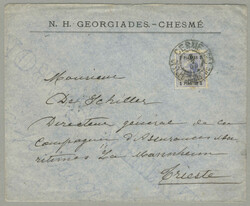 N. H. GEORGIADES.-CHESMÉ.
Monsieur
De Schiller
Directeur général de la
Compagnie d'Assurances Ma
ritimes La Mannheim
Trieste